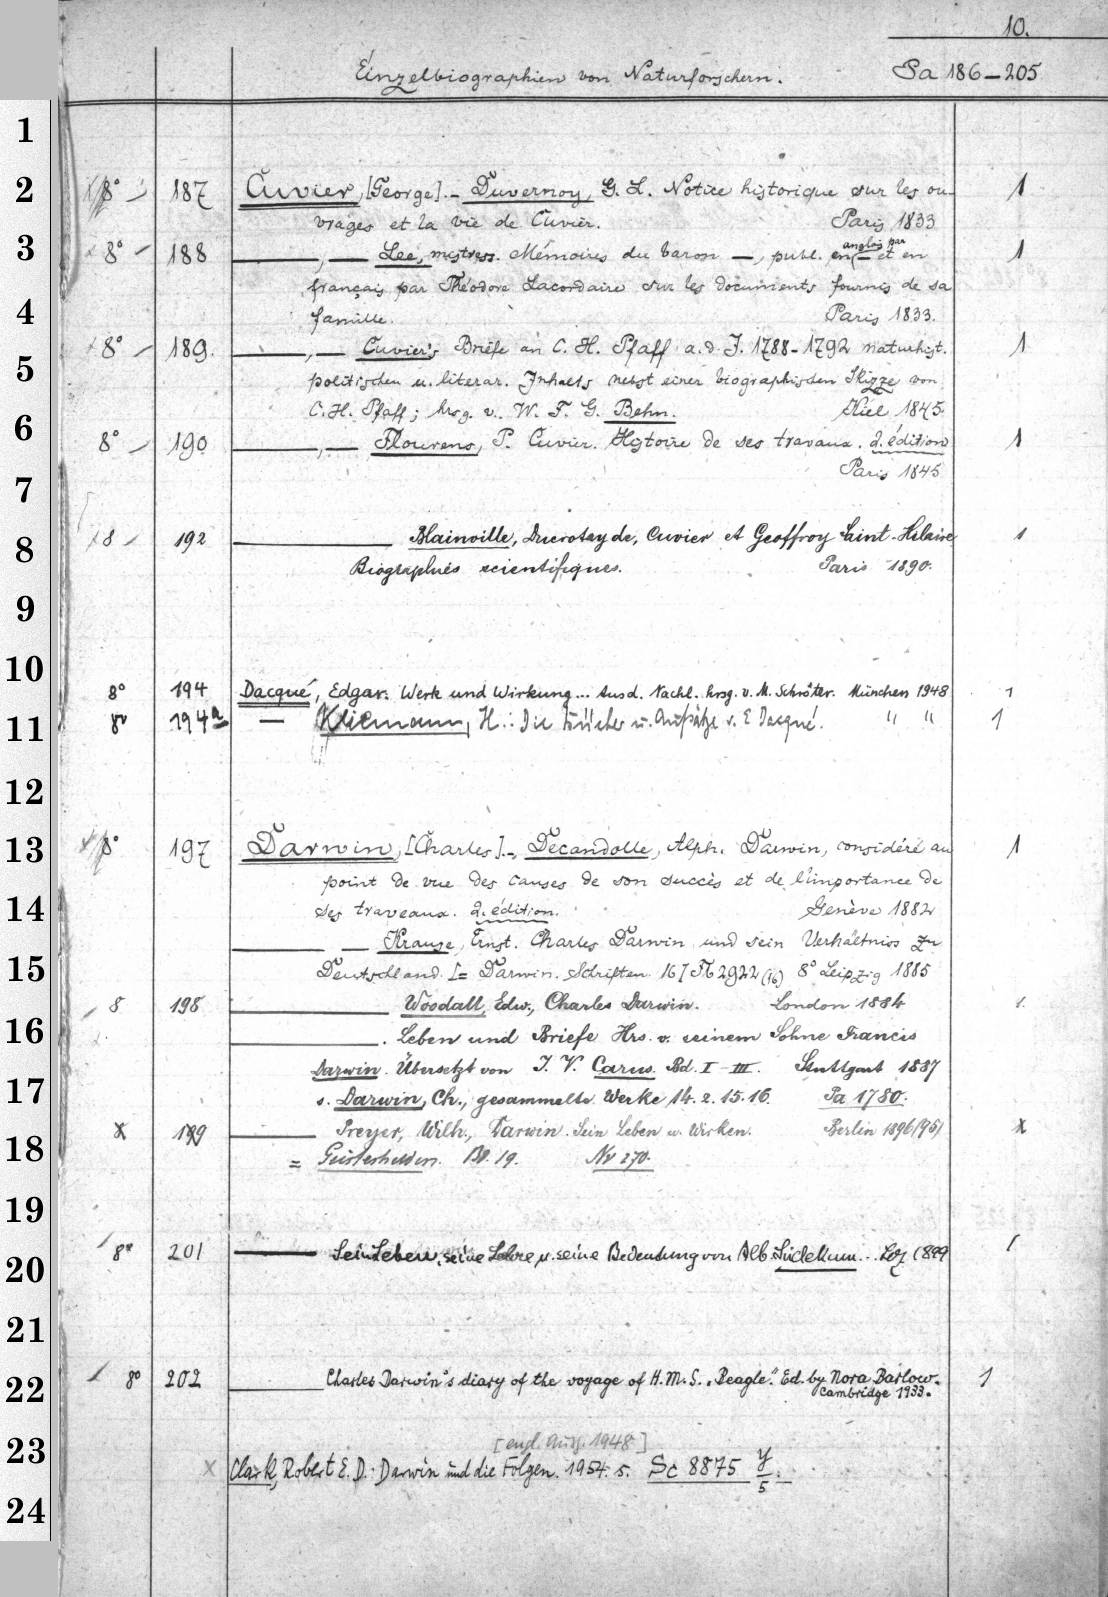 10.
Einzelbiographien von Naturforschern. Pa 186–205
1
2 8° 187 Cuvier, [George]. – Duvernoy, G. L. Notice historique sur les ou- 1
vrages et la vie de Cuvier. Paris 1833
3 8° 188 —, — Lee, mistress. Mémoires du baron —, publ. en anglais par — et en 1
français par Théodore Lacordaire sur les documents fournis de sa
4 famille. Paris 1833.
5 8° 189. —, — Cuvier's Briefe an C. H. Pfaff a. d. J. 1788–1792 naturhist. 1
politischen u. literar. Inhalts nebst einer biographischen Skizze von
6 C. H. Pfaff; hrsg. v. W. F. G. Behn. Kiel 1845.
8° 190 —, — Flourens, P. Cuvier. Histoire de ses travaux. 2. édition 1
7 Paris 1845
8 8 192 — Blainville, Ducrotay de, Cuvier et Geoffroy Saint-Hilaire 1
Biographies scientifiques. Paris 1890.
9
10 8° 194 Dacqué, Edgar. Werk und Wirkung... Aus d. Nachl. hrsg. v. M. Schröter. München 1948 1
11 8° 194a — Kliemann, H.: Die Bücher u. Aufsätze v. E Dacqué. " " 1
12
13 8° 197 Darwin, [Charles]. –, Decandolle, Alph. Darwin, considéré au 1
point de vue des causes de son succès et de l'importance de
14 ses traveaux. 2. édition. Genève 1882
— — Krause, Ernst. Charles Darwin und sein Verhältniss zu
15 Deutschland. [= Darwin. Schriften 16] 2922 (16) 8° Leipzig 1885
8 198 — Woodall, Edw., Charles Darwin. London 1884 1.
16 — . Leben und Briefe Hrs. v. seinem Sohne Francis
Darwin. Übersetzt von J. V. Carus. Bd. I – III. Stuttgart 1887
17 s. Darwin, Ch., gesammelte Werke 14. 2. 15. 16. Pa 1780.
x 199 — Preyer, Wilh., Darwin. Sein Leben u. Wirken. Berlin 1896 x
18 = Geisteshelden. Bd. 19. Nv 270.
19
20 8° 201 — Sein Leben, seine Lehre u. seine Bedeutung von Alb. Südekum... Lpz 1899 1
21
22 8° 202 — Charles Darwin's diary of the voyage of H. M. S. „Beagle." Ed. by Nora Barlow. 1
Cambridge 1933.
23 [engl. Ausg. 1948]
x Clark, Robert E. D.: Darwin und die Folgen. 1954. s. Sc 8875 y/5.
24